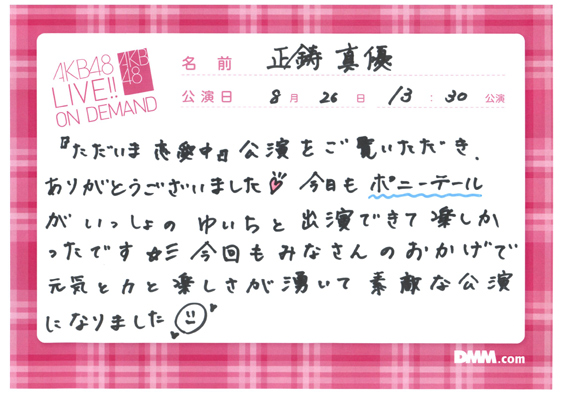 AKB48
LIVE!!
ON DEMAND
AKB
48
名前 正鋳真優
公演日 8月 26日 13:30 公演
『ただいま恋愛中』公演をご覧いただき、
ありがとうございました 今日もポニーテール
がいっしょの ゆいちと出演できて楽しか
ったです☆彡 今回もみなさんのおかげで
元気と力と楽しさが湧いて 素敵な公演
になりました
DMM.com